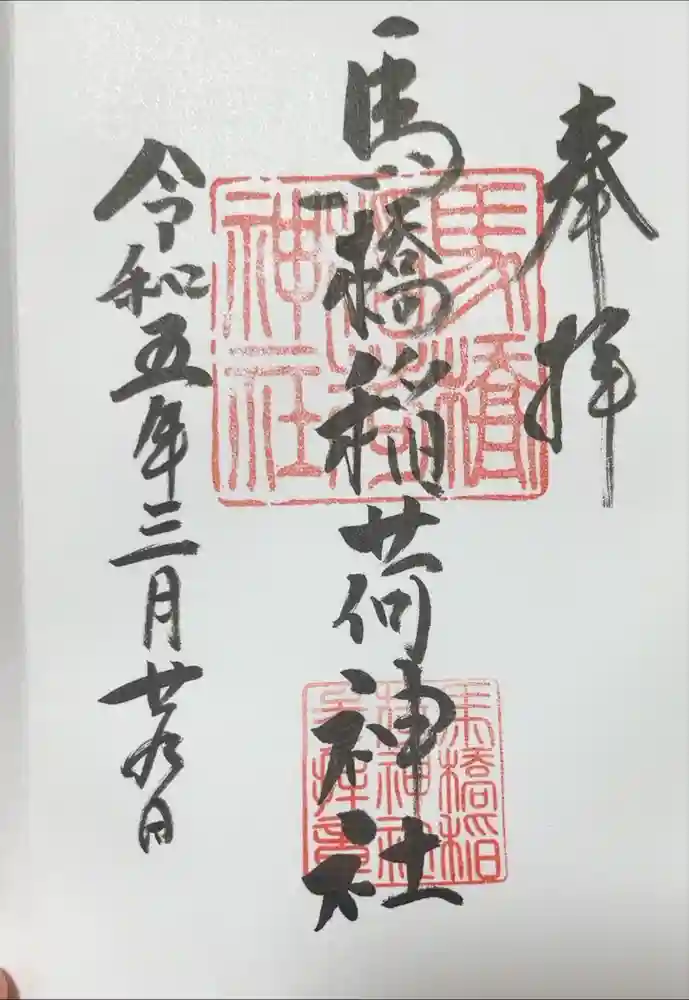 奉拝
馬橋稲荷神社
令和五年三月廿九日
馬橋
稲荷
神社
馬橋稲
荷神社
参拝章